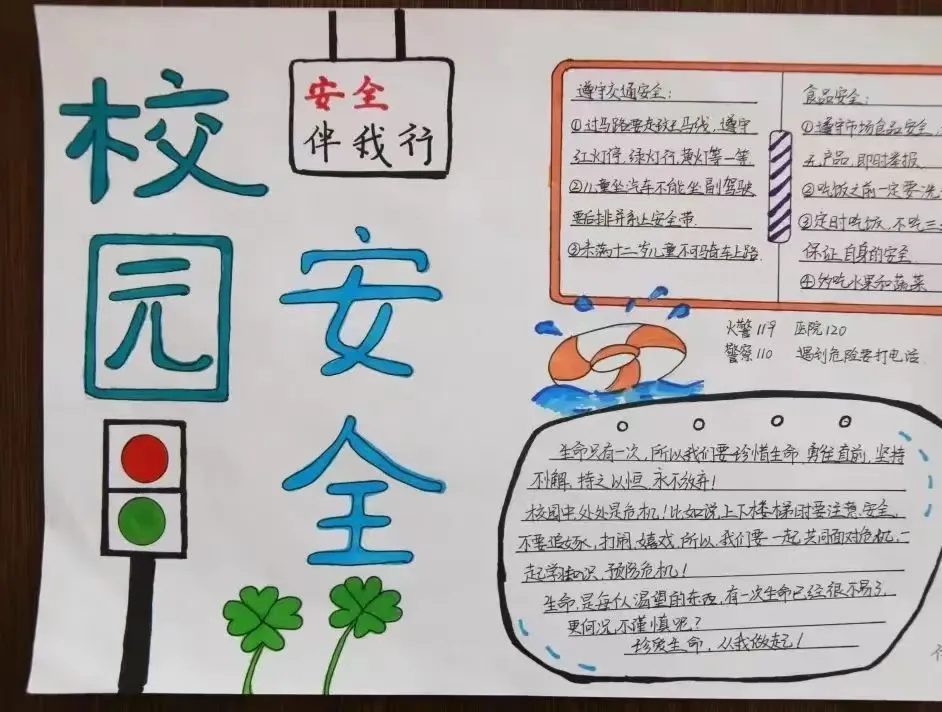 校园
安全
安全
伴我行
遵守交通安全：
①过马路要走斑马线，遵守
红灯停，绿灯行，黄灯等一等
②儿童坐汽车不能坐副驾驶
要后排并系上安全带.
③未满十二岁儿童不可骑车上路.
食品安全：
①遵守市场食品安全，
产品，即时举报
②吃饭之前一定要洗
③定时吃饭，不吃三
保证自身的安全
④多吃水果和蔬菜
火警119 医院120
警察110 遇到危险要打电话
生命只有一次，所以我们要珍惜生命，勇往直前，坚持
不懈，持之以恒，永不放弃！
校园中处处是危机！比如说上下楼梯时要注意安全，
不要追逐，打闹，嬉戏，所以，我们要一起共同面对危机，一
起学知识，预防危机！
生命，是每人渴望的东西，有一次生命已经很不易了，
更何况，不谨慎呢？
珍爱生命，从我做起！